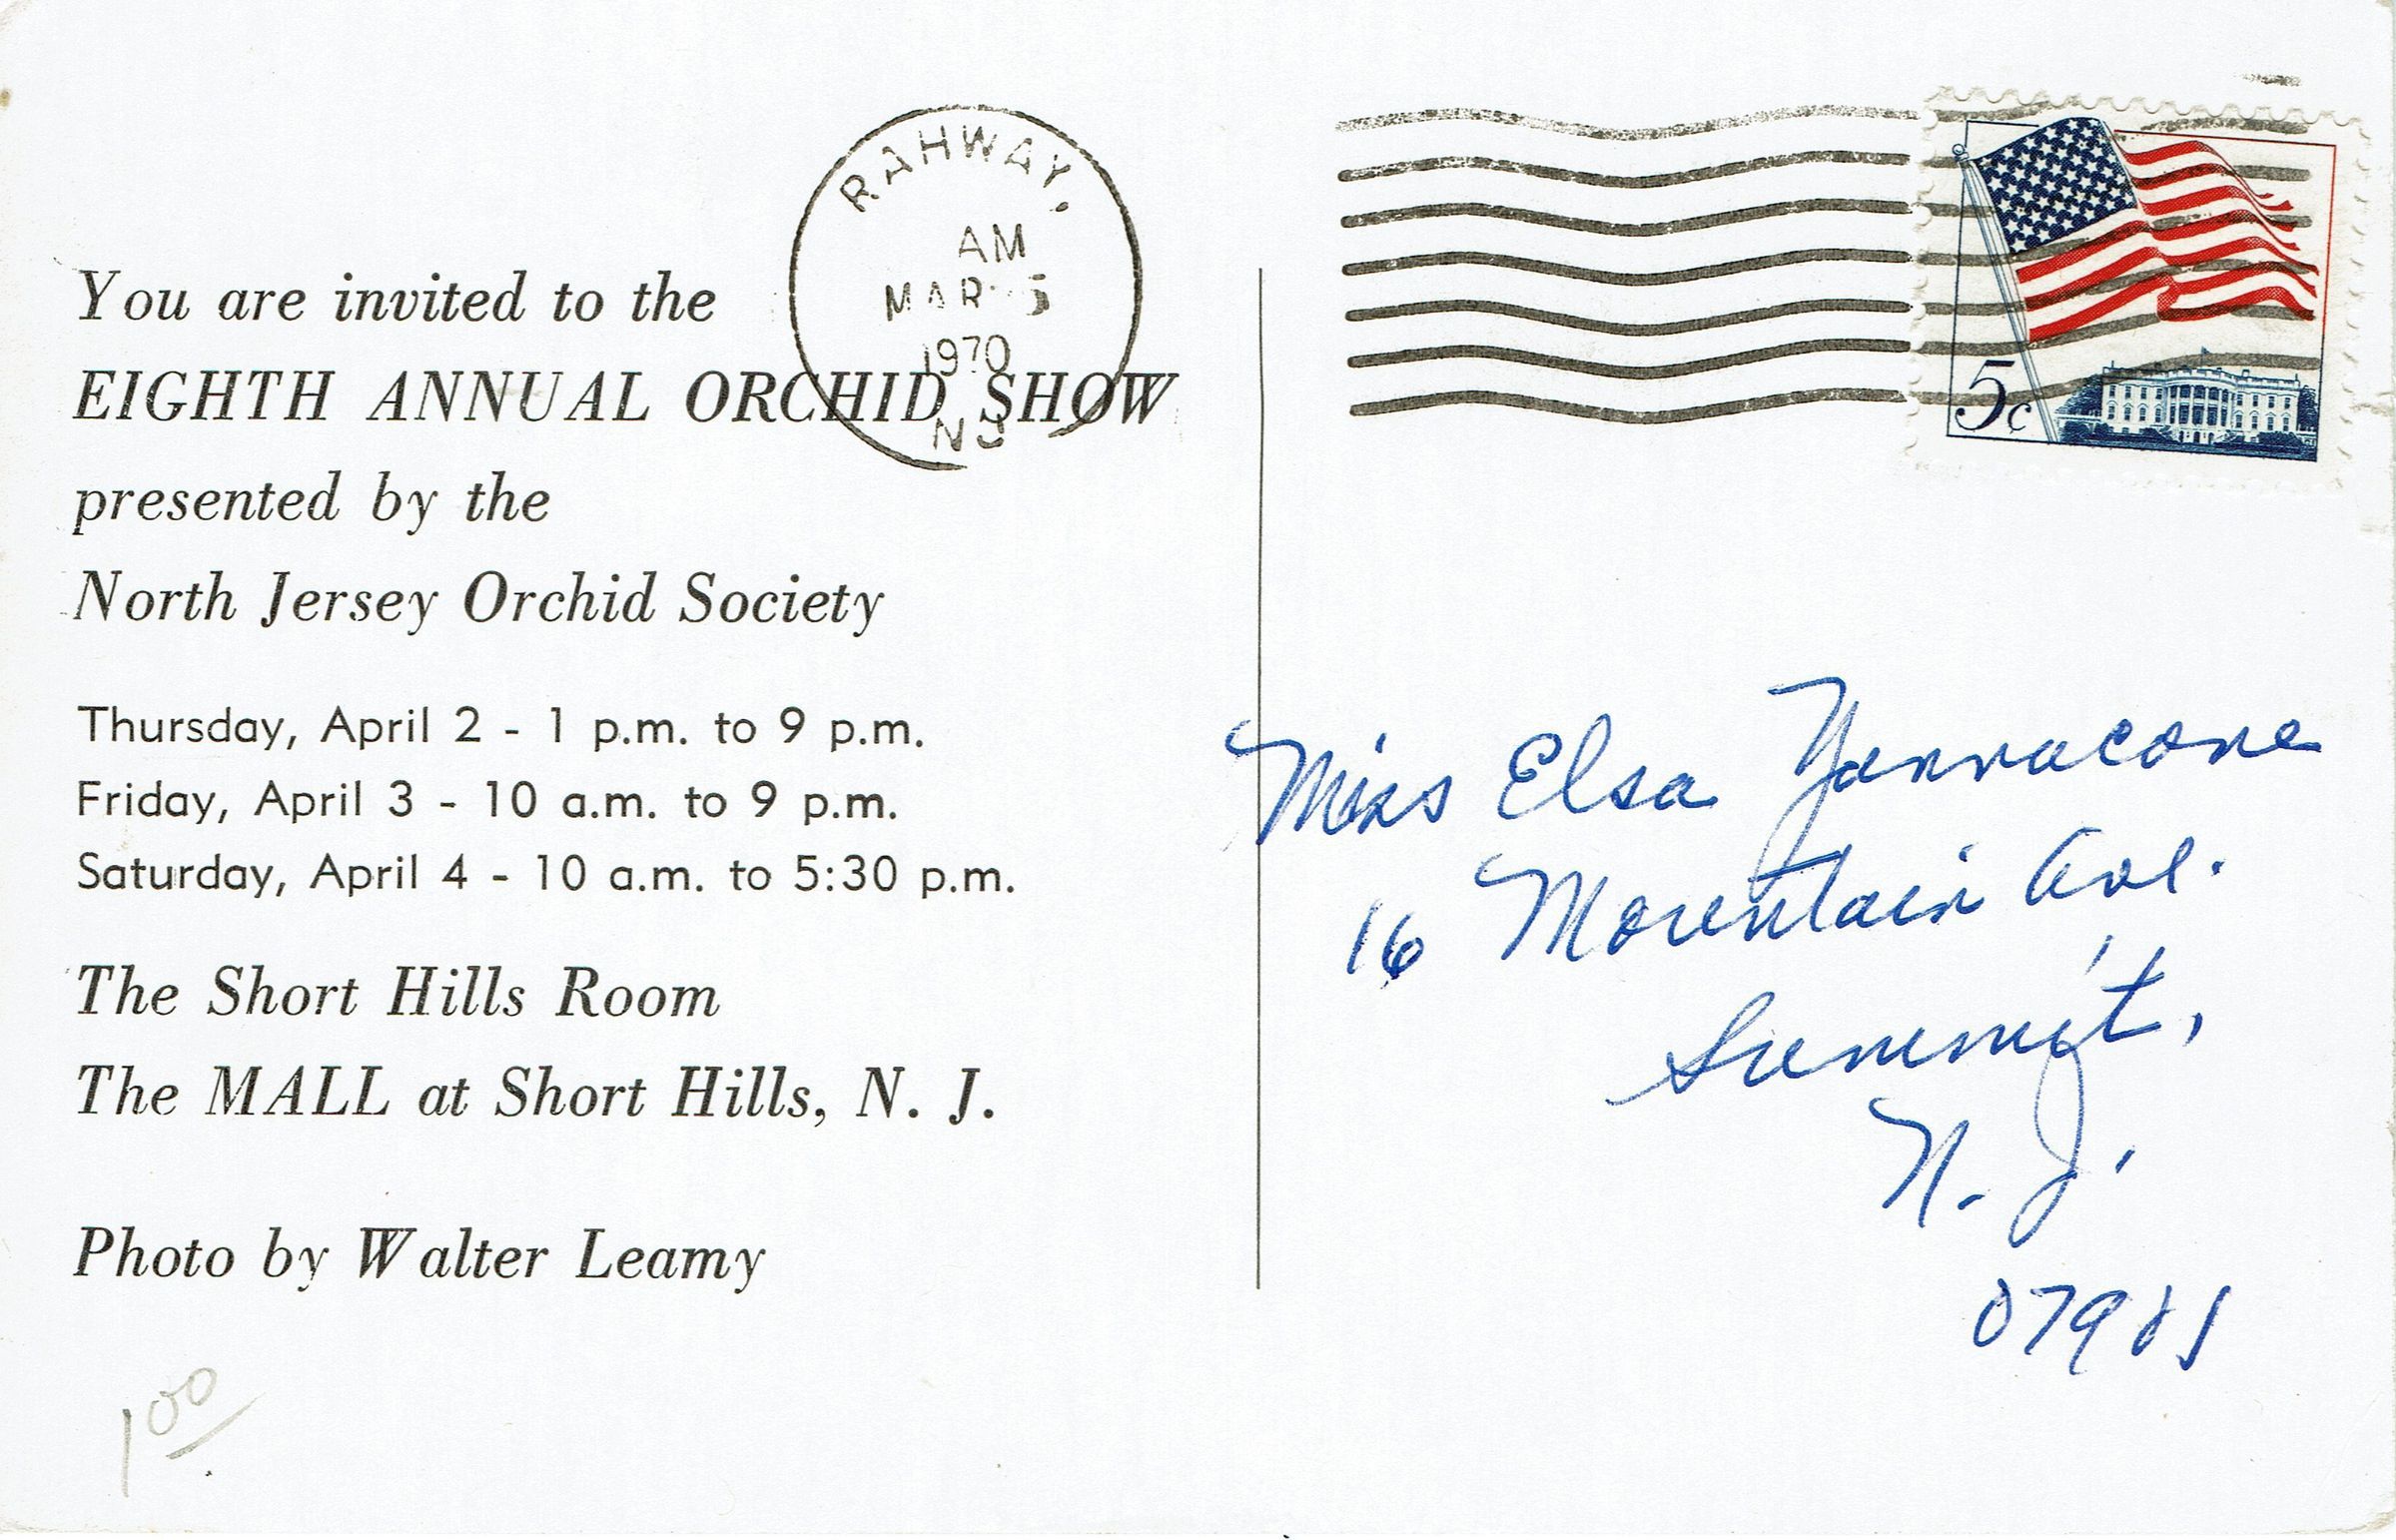 RAHWAY,
AM
MAR 5
1970
NJ
5c
You are invited to the
EIGHTH ANNUAL ORCHID SHOW
presented by the
North Jersey Orchid Society
Thursday, April 2 - 1 p.m. to 9 p.m.
Friday, April 3 - 10 a.m. to 9 p.m.
Saturday, April 4 - 10 a.m. to 5:30 p.m.
The Short Hills Room
The MALL at Short Hills, N. J.
Photo by Walter Leamy
1 00
Miss Elsa
16 Mountain Ave.
Summit,
N. J.